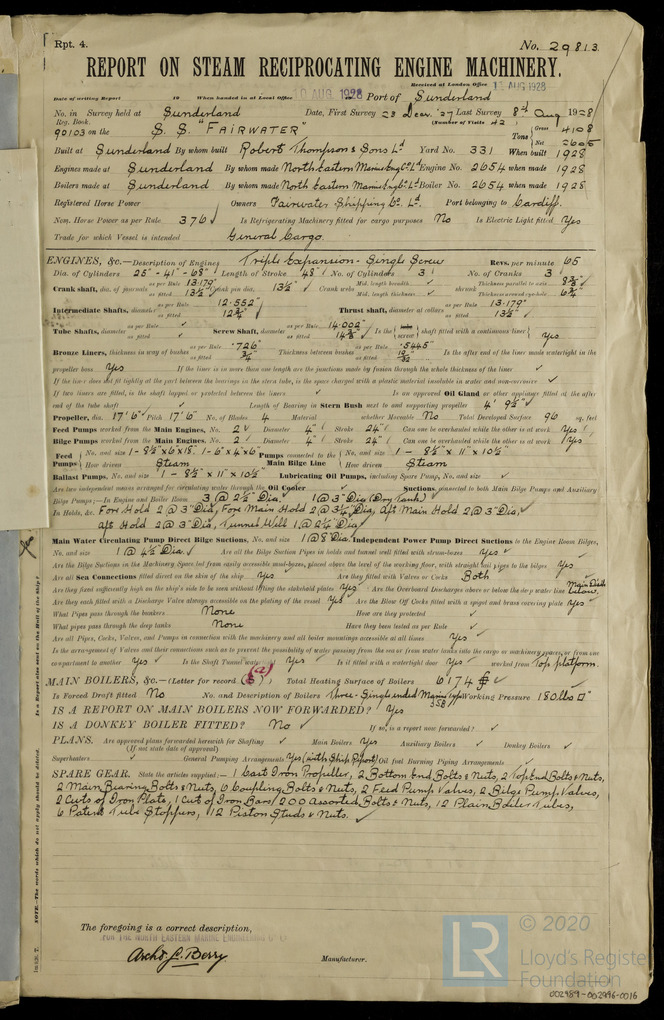 Rpt. 4.
No. 29813
REPORT ON STEAM RECIPROCATING ENGINE MACHINERY.
Received at London Office 11 AUG 1928
Date of writing Report 19 When handed in at Local Office 10 AUG 1928 Port of Sunderland
No. in Survey held at Sunderland Date, First Survey 23 Dec. '27 Last Survey 8th Aug 1928
Reg. Book. (Number of Visits 42)
90103 on the S.S. "FAIRWATER" Tons Gross 4108
Net 2605
Built at Sunderland By whom built Robert Thompson & Sons Ld Yard No. 331 When built 1928
Engines made at Sunderland By whom made North Eastern Marine Eng Co Ld Engine No. 2654 when made 1928
Boilers made at Sunderland By whom made North Eastern Marine Eng Co Ld Boiler No. 2654 when made 1928
Registered Horse Power Owners Fairwater Shipping Co. Ld. Port belonging to Cardiff.
Nom. Horse Power as per Rule 376 Is Refrigerating Machinery fitted for cargo purposes No Is Electric Light fitted Yes
Trade for which Vessel is intended General Cargo.
ENGINES, &c.—Description of Engines Triple Expansion - Single Screw Revs. per minute 65
Dia. of Cylinders 25" - 41" - 68" Length of Stroke 48" No. of Cylinders 3 No. of Cranks 3
Crank shaft, dia. of journals as per Rule 13.179" as fitted 13½" Crank pin dia. 13½" Crank webs Mid. length breadth ✓ Mid. length thickness ✓ shrunk Thickness parallel to axis 8⅜" Thickness around eye-hole 6¾"
Intermediate Shafts, diameter as per Rule 12.552" as fitted 12¾" Thrust shaft, diameter at collars as per Rule 13.179" as fitted 13½"
Tube Shafts, diameter as per Rule ✓ as fitted ✓ Screw Shaft, diameter as per Rule 14.002" as fitted 14⅜" Is the screw shaft fitted with a continuous liner Yes
Bronze Liners, thickness in way of bushes as per Rule .726" as fitted ¾" Thickness between bushes as per Rule .5445" as fitted 19/32" Is the after end of the liner made watertight in the
propeller boss Yes If the liner is in more than one length are the junctions made by fusion through the whole thickness of the liner ✓
If the liner does not fit tightly at the part between the bearings in the stern tube, is the space charged with a plastic material insoluble in water and non-corrosive ✓
If two liners are fitted, is the shaft lapped or protected between the liners ✓ Is an approved Oil Gland or other appliance fitted at the after
end of the tube shaft ✓ Length of Bearing in Stern Bush next to and supporting propeller 4' 9½"
Propeller, dia. 17' 6" Pitch 17' 6" No. of Blades 4 Material whether Moveable No Total Developed Surface 96 sq. feet
Feed Pumps worked from the Main Engines, No. 2 Diameter 4" Stroke 24" Can one be overhauled while the other is at work Yes
Bilge Pumps worked from the Main Engines, No. 2 Diameter 4" Stroke 24" Can one be overhauled while the other is at work Yes
Feed Pumps No. and size 1 - 8½" x 6" x 18" 1 - 6" x 4" x 6" Pumps connected to the Main Bilge Line No. and size 1 - 8½" x 11" x 10½"
How driven Steam How driven Steam
Ballast Pumps, No. and size 1 - 8½" x 11" x 10½" Lubricating Oil Pumps, including Spare Pump, No. and size ✓
Are two independent means arranged for circulating water through the Oil Cooler ✓ Suctions, connected to both Main Bilge Pumps and Auxiliary
Bilge Pumps;—In Engine and Boiler Room 3 @ 2½" Dia. 1 @ 3" Dia (Dry Tank)
In Holds, &c. For'd Hold 2 @ 3" Dia, Fore Main Hold 2 @ 3¼" Dia, Aft Main Hold 2 @ 3" Dia,
Aft Hold 2 @ 3" Dia, Tunnel Well 1 @ 2½" Dia
Main Water Circulating Pump Direct Bilge Suctions, No. and size 1 @ 8" Dia. Independent Power Pump Direct Suctions to the Engine Room Bilges,
No. and size 1 @ 4½" Dia. Are all the Bilge Suction Pipes in holds and tunnel well fitted with strum-boxes Yes
Are the Bilge Suctions in the Machinery Space led from easily accessible mud-boxes, placed above the level of the working floor, with straight tail pipes to the bilges Yes
Are all Sea Connections fitted direct on the skin of the ship Yes Are they fitted with Valves or Cocks Both
Are they fixed sufficiently high on the ship's side to be seen without lifting the stokehold plates Yes Are the Overboard Discharges above or below the deep water line below
Are they each fitted with a Discharge Valve always accessible on the plating of the vessel Yes Are the Blow Off Cocks fitted with a spigot and brass covering plate Yes
What Pipes pass through the bunkers None How are they protected ✓
What pipes pass through the deep tanks None Have they been tested as per Rule ✓
Are all Pipes, Cocks, Valves, and Pumps in connection with the machinery and all boiler mountings accessible at all times Yes
Is the arrangement of Valves and their connections such as to prevent the possibility of water passing from the sea or from water tanks into the cargo or machinery spaces, or from one
compartment to another Yes Is the Shaft Tunnel watertight Yes Is it fitted with a watertight door Yes worked from Top platform.
MAIN BOILERS, &c.—(Letter for record (S)) Total Heating Surface of Boilers 6174
Is Forced Draft fitted No No. and Description of Boilers Three - Single ended Marine type Working Pressure 180 lbs □"
IS A REPORT ON MAIN BOILERS NOW FORWARDED? Yes
IS A DONKEY BOILER FITTED? No If so, is a report now forwarded? ✓
PLANS. Are approved plans forwarded herewith for Shafting ✓ Main Boilers Yes Auxiliary Boilers ✓ Donkey Boilers ✓
(If not state date of approval)
Superheaters ✓ General Pumping Arrangements Yes (with Ship Report) Oil fuel Burning Piping Arrangements ✓
SPARE GEAR. State the articles supplied:— 1 Cast Iron Propeller, 2 Bottom End Bolts & Nuts, 2 Top End Bolts & Nuts,
2 Main Bearing Bolts & Nuts, 6 Coupling Bolts & Nuts, 2 Feed Pump Valves, 2 Bilge Pump Valves,
2 Cuts of Iron Plate, 1 Cut of Iron Bars, 200 Assorted Bolts & Nuts, 12 Plain Boiler Tubes,
6 Patent Tube Stoppers, 12 Piston Studs & Nuts.
The foregoing is a correct description,
FOR THE NORTH EASTERN MARINE ENGINEERING Co. Ld.
Archd. L. Berry. Manufacturer.
NOTE.—The words which do not apply should be deleted.
Is a Report also sent on the Hull of the Ship?
© 2020
LR
Lloyd's Register
Foundation
002989-002996-0016